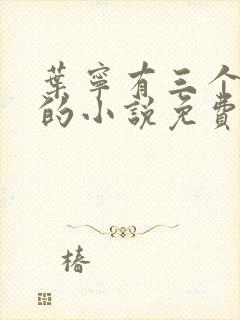 葉寧有三个
的小說免費
椿